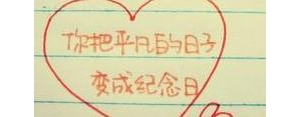 你把平凡的日子
变成纪念日